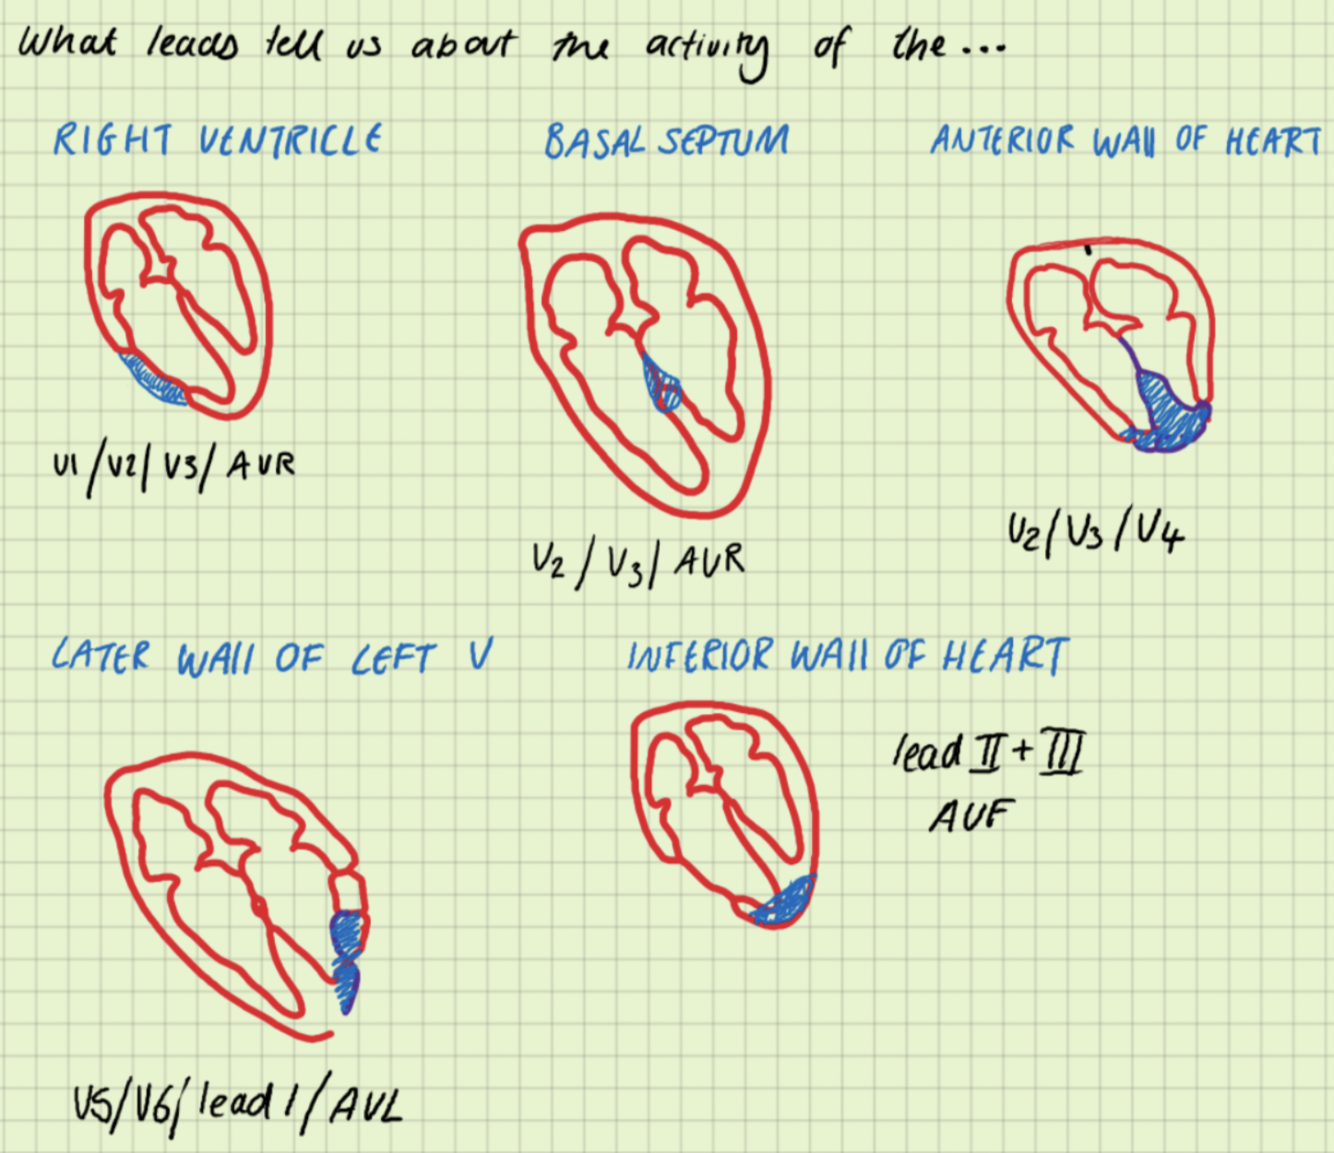 What leads tell us about the activity of the...
RIGHT VENTRICLE
BASAL SEPTUM
ANTERIOR WALL OF HEART
V1/V2/V3/AVR
V2/V3/AVR
V2/V3/V4
LATER WALL OF LEFT V
INFERIOR WALL OF HEART
lead II + III
AVF
V5/V6/lead 1/AVL